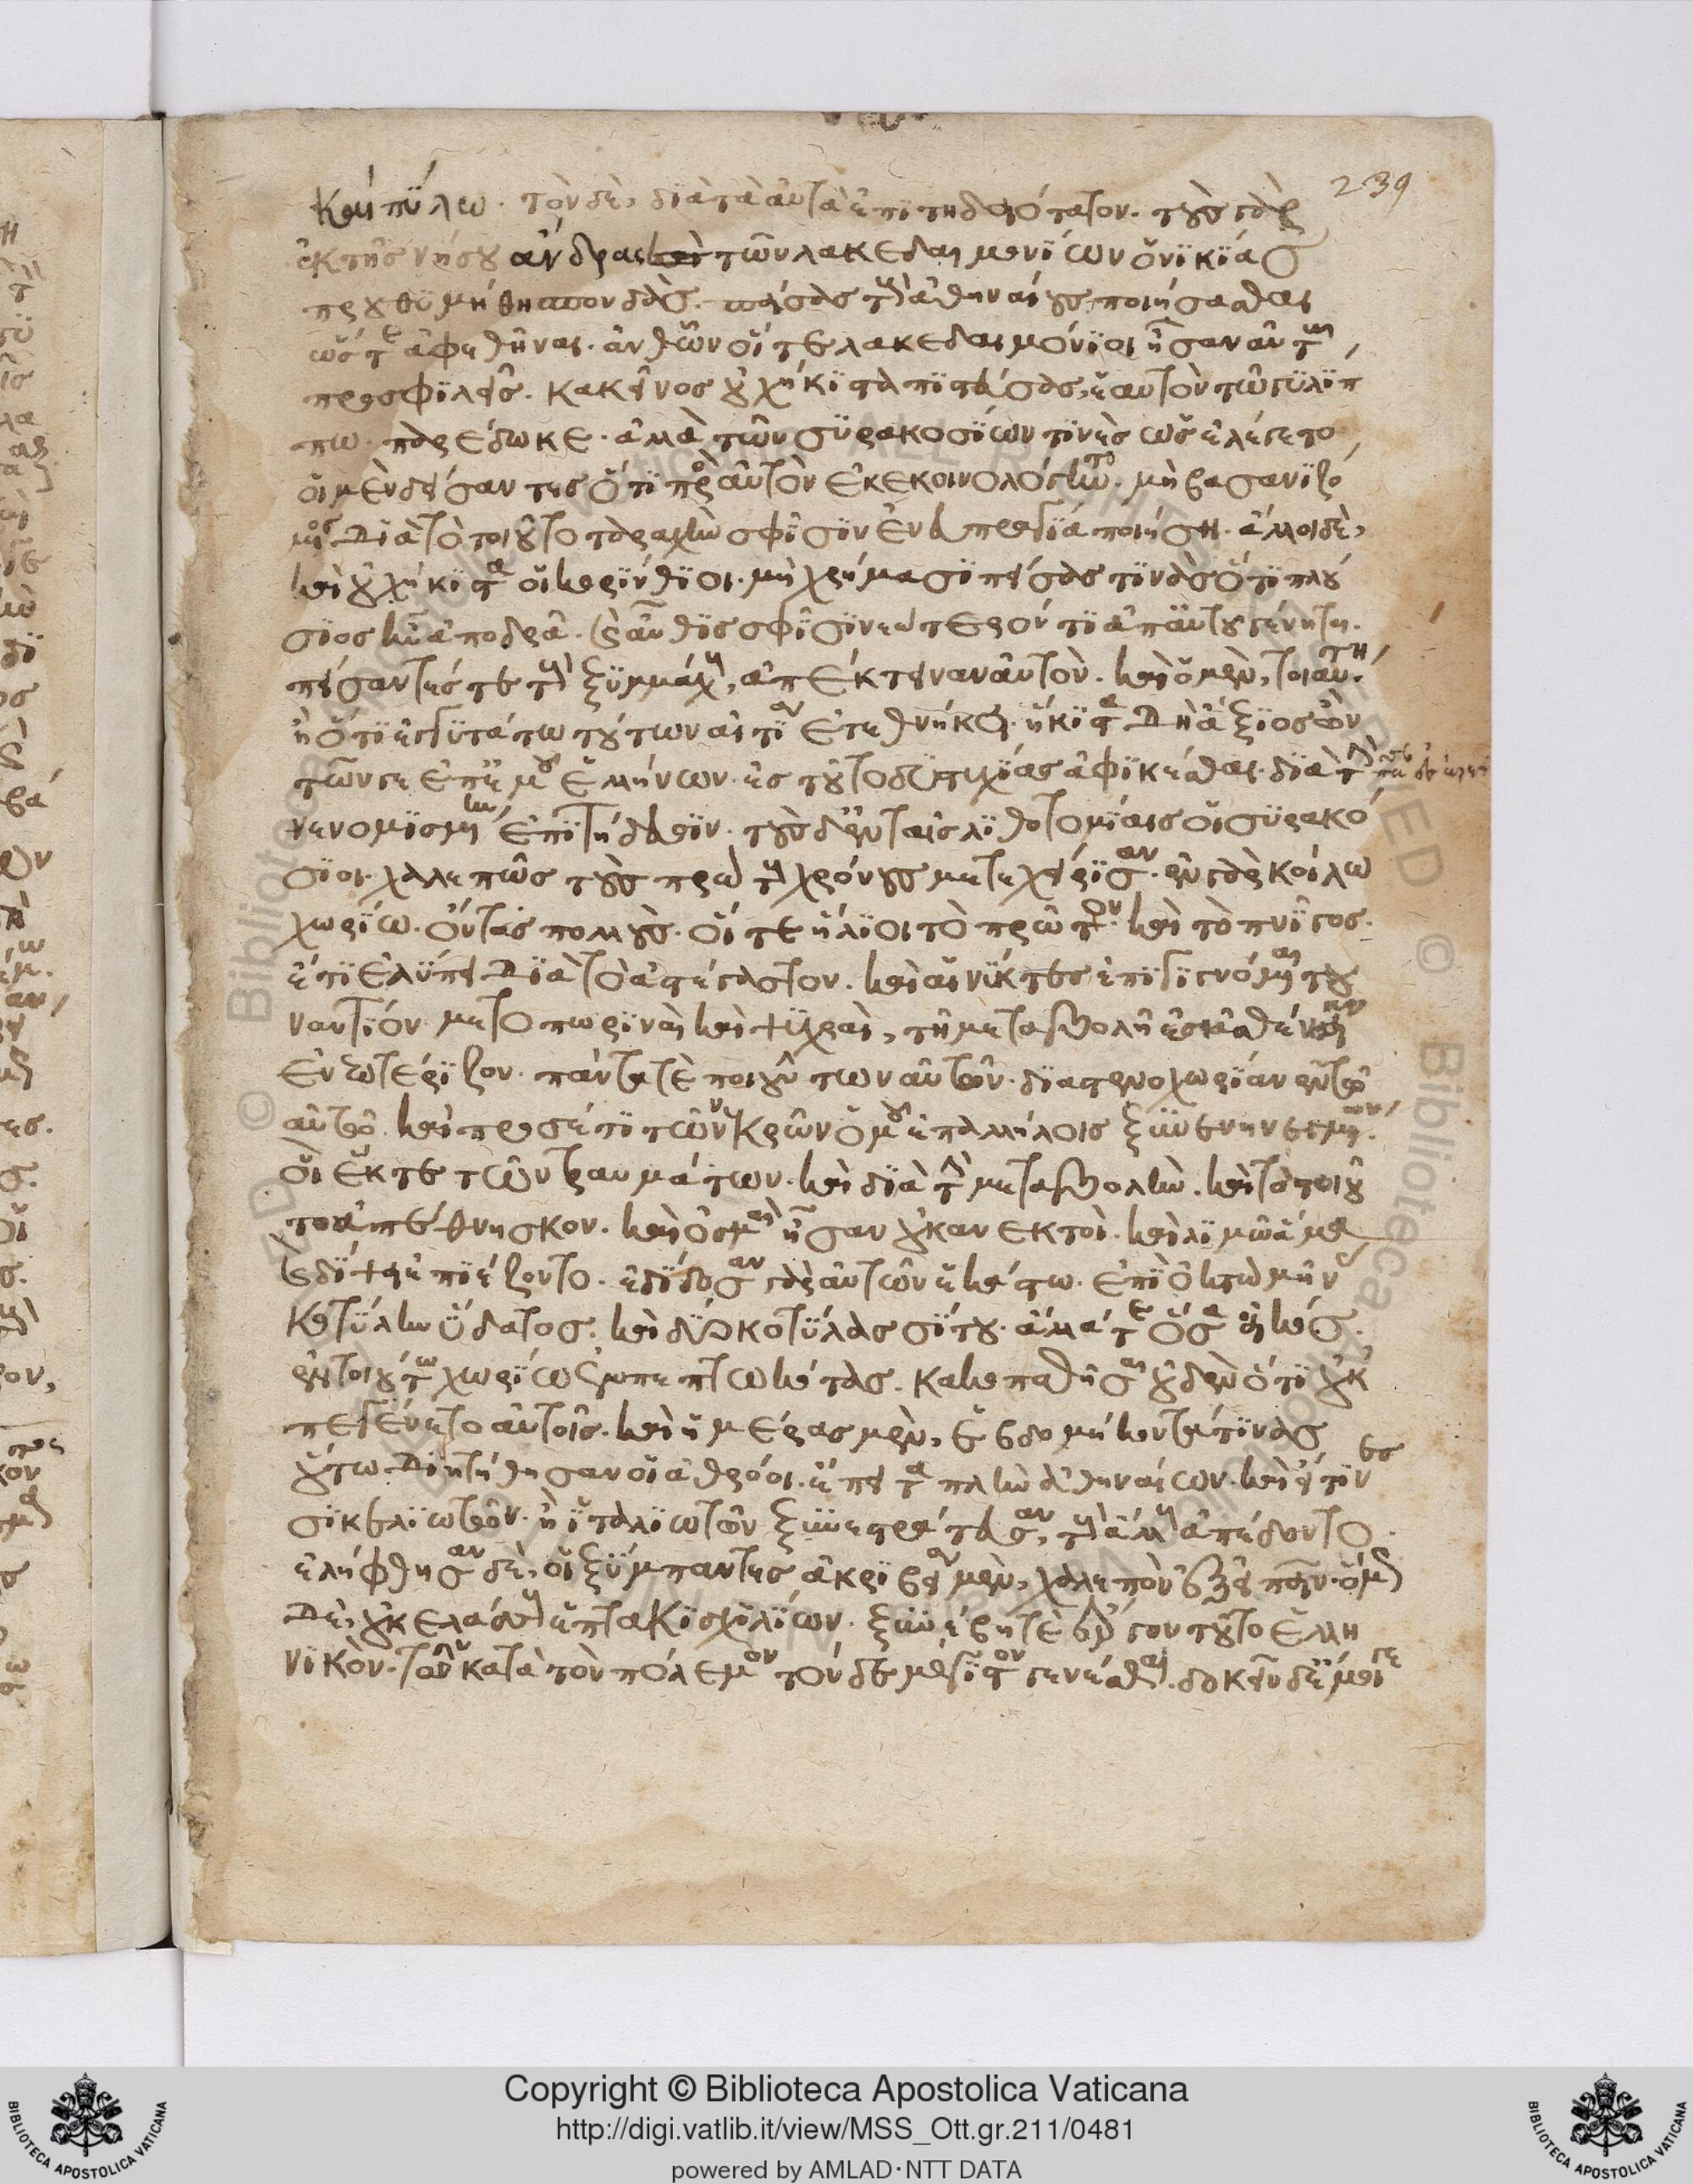 239
καὶ πύλω. τὸν δὲ, διὰ τὰ αὐτὰ ἐπιτηδειότατον. τοὺς γὰρ
ἐκ τῆς νήσου ἄνδρας τῶν λακεδαιμονίων ὁ νικίας
προυθυμήθη σπονδὰς. πείσας τοὺς ἀθηναίους ποιήσασθαι
ὥστε ἀφεθῆναι. ἀνθ ὧν οἵ τε λακεδαιμόνιοι ἦσαν αὐτῶ
προσφιλεῖς. κακεῖνος οὐχ ἥκιστα πιστεύσας, ἑαυτὸν τῶ γυλίπ
πω. παρέδωκε. ἀλλὰ τῶν συρακοσίων τινὲς ὡς ἐλέγετο
οἱ μὲν δείσαντες ὅτι πρὸς αὐτὸν ἐκεκοινολόγηντο. μὴ βασανιζό
μενος διὰ τὸ τοιοῦτο ταραχὴν σφίσιν ἐν εὐπραγία ποιήση. ἄλλοι δὲ,
καὶ οὐχ ἥκιστα οἱ κορίνθιοι. μὴ χρήμασι πείσας τινὰς ὅτι πλού
σιος ἦν ἀποδρᾶ. καὶ αὖθις σφίσι νεώτερόν τι ἀπ αὐτοῦ γένηται.
πείσαντές τε τοὺς ξυμμάχους, ἀπέκτειναν αὐτὸν. καὶ ὁ μὲν, τοιαύτη
ἢ ὅτι ἐγγυτάτω τούτων αἰτίαν ἐτεθνήκει. ἥκιστα δὴ ἄξιος ὢν
τῶν γε ἐπ ἐμοῦ ἑλλήνων. ἐς τοῦτο δυστυχίας ἀφικέσθαι. διὰ τὴν
νενομισμένην ἐπιτήδευσιν. τοὺς δ ἐν ταῖς λιθοτομίαις οἱ συρακό
σιοι. χαλεπῶς τοὺς πρώτους χρόνους μετεχείρισαν. ἐν γὰρ κοίλω
χωρίω. ὄντας πολλοὺς. οἵ τε ἥλιοι τὸ πρῶτον. καὶ τὸ πνῖγος.
ἔτι ἐλύπει διὰ τὸ ἀστέγαστον. καὶ αἱ νύκτες ἐπιγιγνόμεναι τοὐ
ναντίον μετοπωριναὶ καὶ ψυχραὶ, τῆ μεταβολῆ ἐς ἀσθένειαν
ἐνεωτέριζον. πάντα τε ποιούντων αὐτῶν. διὰ στενοχωρίαν ἐν τῶ
αὐτῶ. καὶ προσέτι τῶν νεκρῶν ὁμοῦ ἐπ αλλήλοις ξυννενημένων.
οἳ ἔκ τε τῶν τραυμάτων. καὶ διὰ τὴν μεταβολὴν. καὶ τὸ τοιοῦ
το ἀπέθνησκον. καὶ ὀσμαὶ ἦσαν οὐκ ανεκτοὶ. καὶ λιμῶ ἅμα
καὶ δίψει ἐπιέζοντο. ἐδίδοσαν γὰρ αὐτῶν ἑκάστω. ἐπὶ ὀκτὼ μῆνας
κοτύλην ὕδατος. καὶ δύο κοτύλας σίτου. ἄλλα τε ὅσα εἰκὸς.
ἐν τοιούτω χωρίω ἐμπεπτωκότας. κακοπαθῆσαι οὐδὲν ὅτι οὐκ
ἐπεγένετο αὐτοῖς. καὶ ἡμέρας μὲν, ἑβδομήκοντά τινας
οὕτω διητήθησαν οἱ ἀθρόοι. ἔπειτα πλὴν ἀθηναίων. καὶ εἴ τινες
σικελιωτῶν. ἢ ἰταλιωτῶν ξυνεστράτευσαν, τοὺς ἄλλους ἀπέδοντο.
ἐλήφθησαν δὲ, οἱ ξύμπαντες ἀκριβεία μὲν, χαλεπὸν ἐξειπεῖν. ὅμως
δὲ, οὐκ ἐλάσσους ἑπτακισχιλίων. ξυνέβη τε ἔργον τοῦτο ἑλλη
νικὸν. τῶν κατὰ τὸν πόλεμον τόνδε μέγιστον γενέσθαι. δοκεῖν δ ἔμοιγε